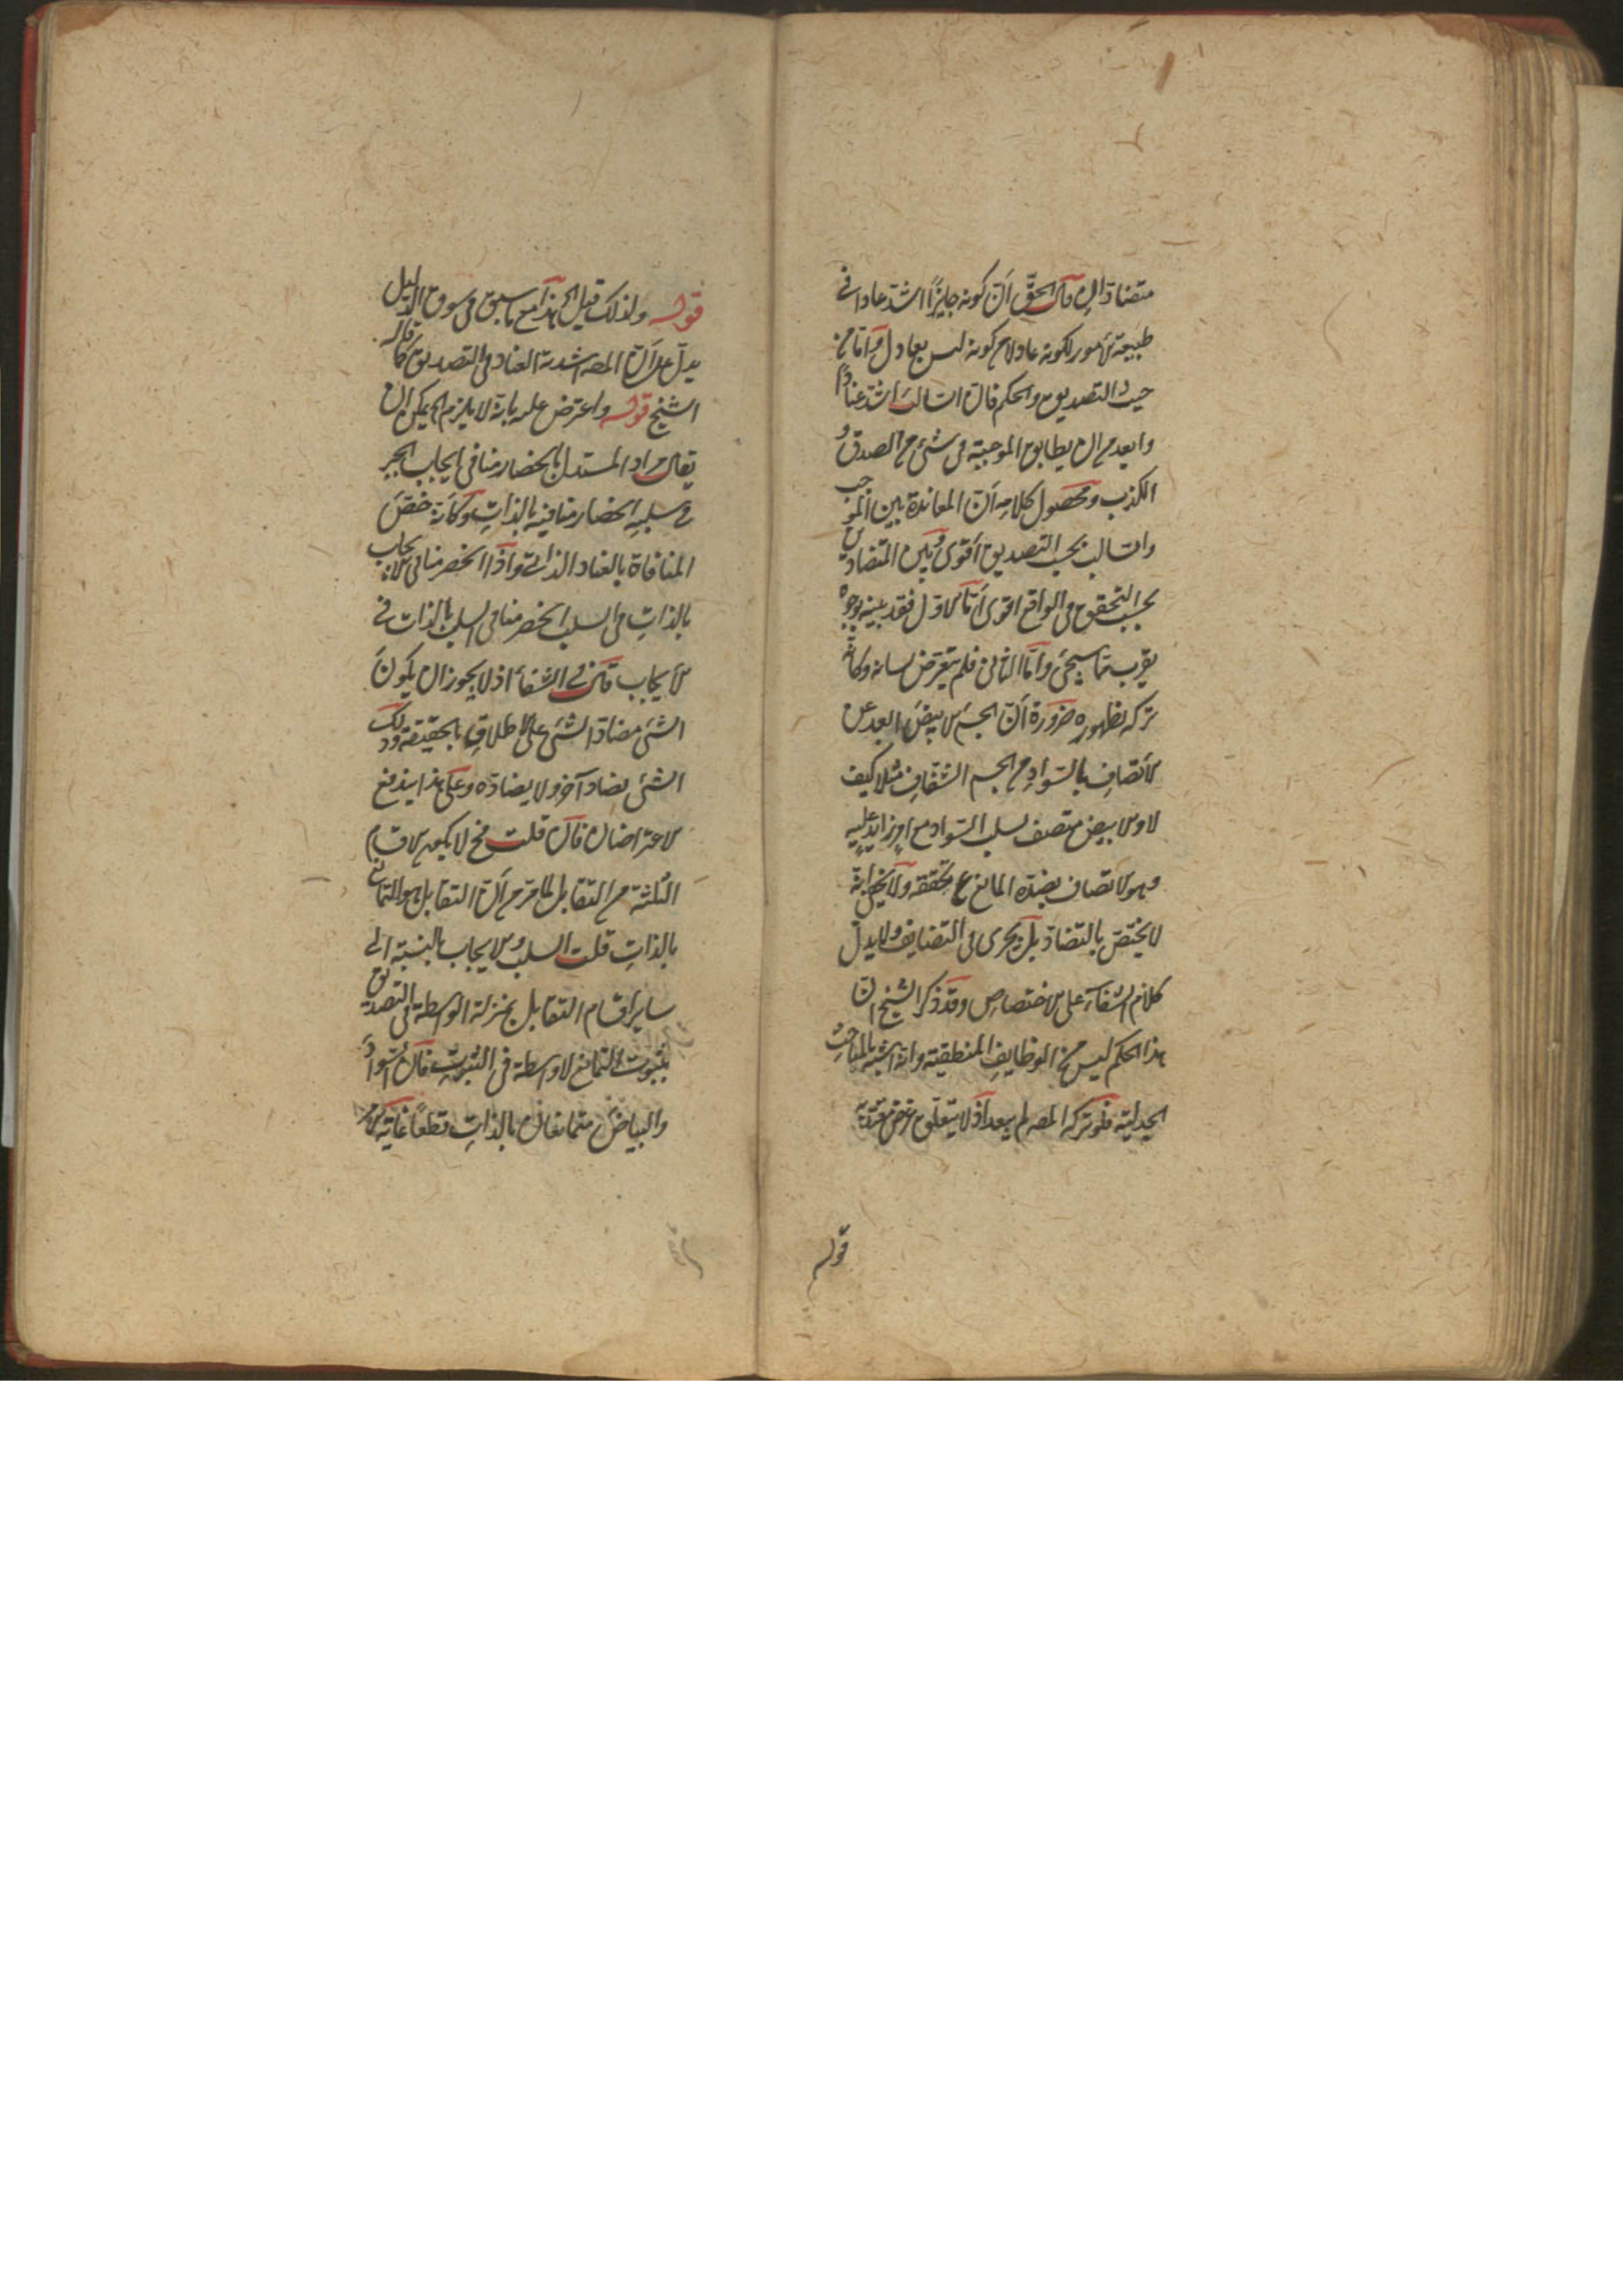 متضادان قال الحق أن كونه جايزًا اشد عنادا في
طبيعة الامور لكونه عادلا من كونه ليس بعادل واما من
حيث التصديق والحكم فان السالب اشد عنادًا
وابعد من ان يطابق الموجبة في شئ من الصدق و
الكذب ومحصول كلامه أن المعاندة بين الموجب
والسالب بحسب التصديق أقوى وبين المتضادين
بحسب التحقق في الواقع اقوى أما الاول فقد بينه بوجوه
يقرب مما سيجئ وأما الثاني فلم يتعرض لبيانه وكأنه
تركه لظهوره ضرورة أن الجسم الابيض ابعد عن
الاتصاف بالسواد من الجسم الشفاف مثلا كيف
لا والابيض متصف بسلب السواد مع امر زايد عليه
وهو الاتصاف بضده المانع عن تحققه ولا يخفى انه
لا يختص بالتضاد بل يجرى في التضايف ولا يدل
كلام الشفاء على الاختصاص وقد ذكر الشيخ ان
هذا الحكم ليس من الوظايف المنطقية وانه اشبه بالمباحث
الجدلية فلو تركه المصـ لم يبعد اذ لا يتعلق غرض معتد به
قوله
قوله ولذلك قيل الخ هذا مع ما سبق في سوق الدليل
يدل على أن المصـ اشدية العناد في التصديق كما قاله
الشيخ قوله واعترض عليه بانه لا يلزم الخ يمكن ان
يقال مراد المستدل بانحصار منافي ايجاب الخير
في سلبه انحصار منافيه بالذات وكأنه خص
المنافاة بالعناد الذاتي واذا انحصر منافي الايجاب
بالذات في السلب انحصر منافي السلب بالذات في
الايجاب قال في الشفاء اذ لا يجوز ان يكون
الشئ مضادا لشئ على الاطلاق بالحقيقة وذلك
الشئ يضاد آخر ولا يضاده وعلى هذا يندفع
الاعتراضان فان قلت فح لا يكون الاقسام
الثلثة من التقابل لما مر من أن التقابل هو التمانع
بالذات قلت السلب والايجاب بالنسبة الى
ساير اقسام التقابل بمنزلة الواسطة في التصديق
بثبوت التمانع لا واسطة في الثبوت فان السواد
والبياض متمانعان بالذات قطعًا غايته الامر